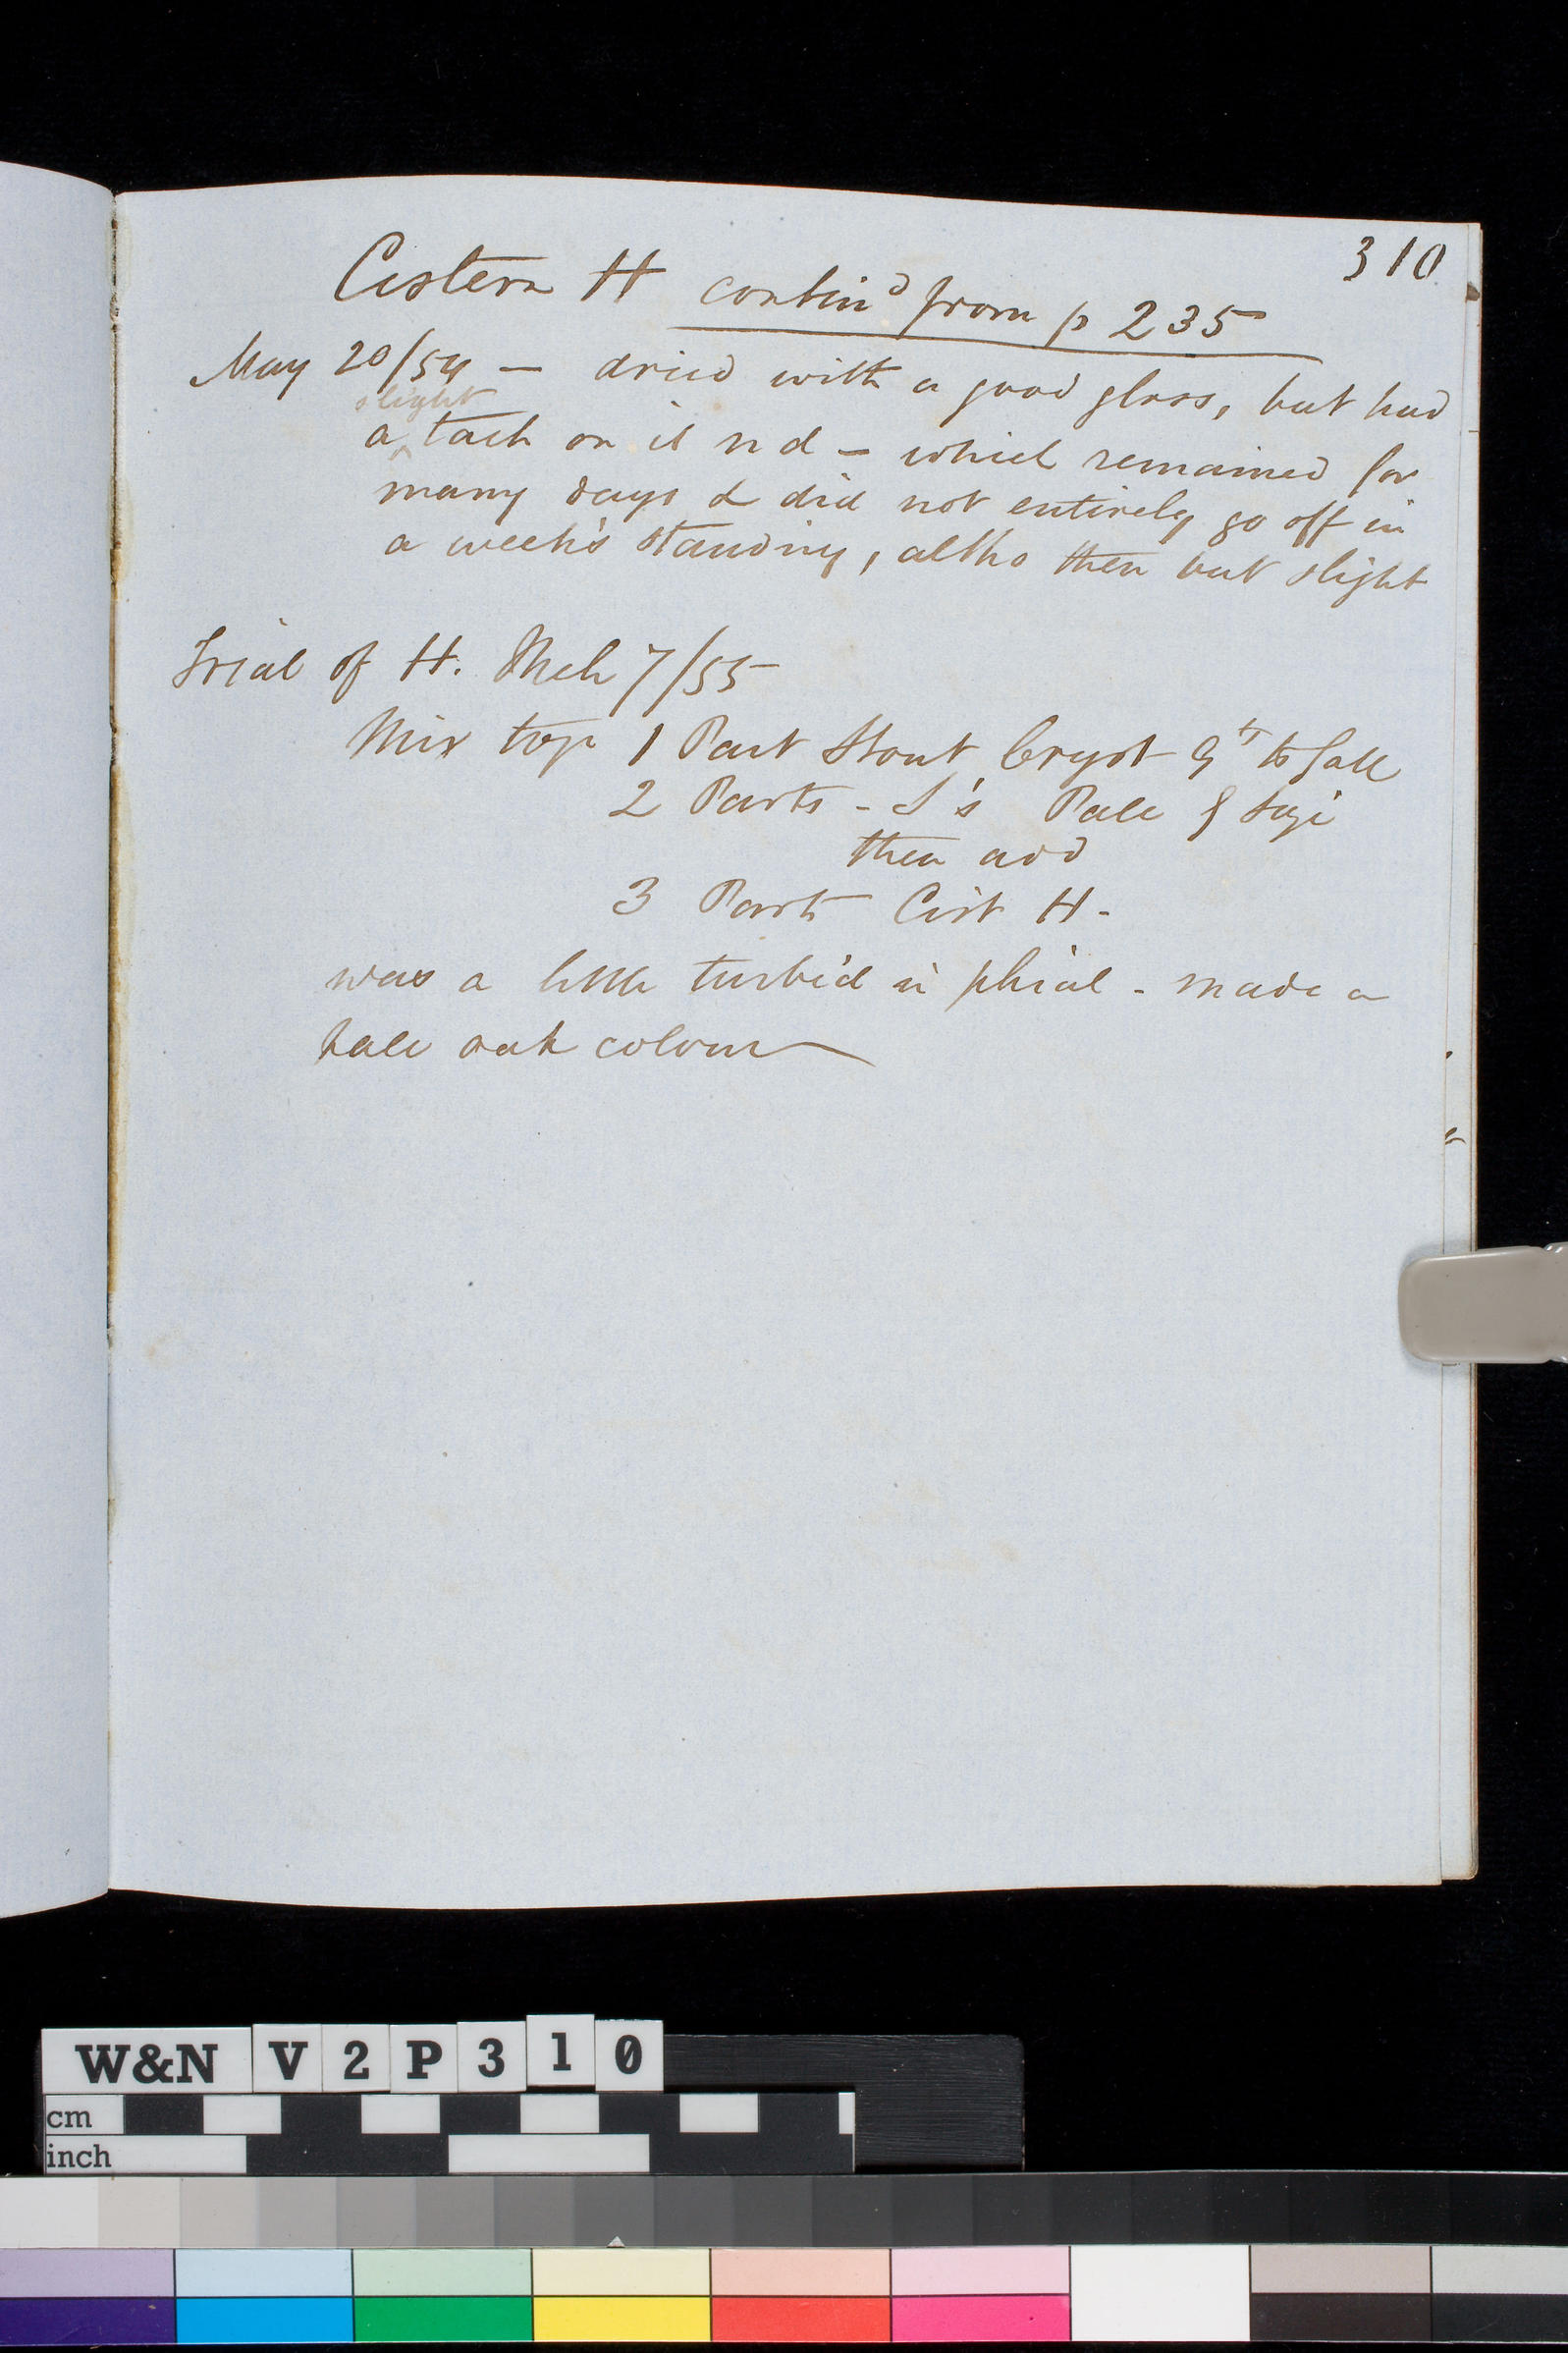 310
Cistern H contin^d from p 235
May 20/54 — dried with a good gloss, but had
slight
a tack on it n d — which remained for
many days & did not entirely go off in
a week's standing, altho then but slight
Trial of H. Mch 7/55
Mix tog 1 Part Stout Cryst
2 Parts - J's Pale
then add
3 Parts Cist H -
was a little turbid in phial - made a
pale oak colour
W&N V2P310
cm
inch